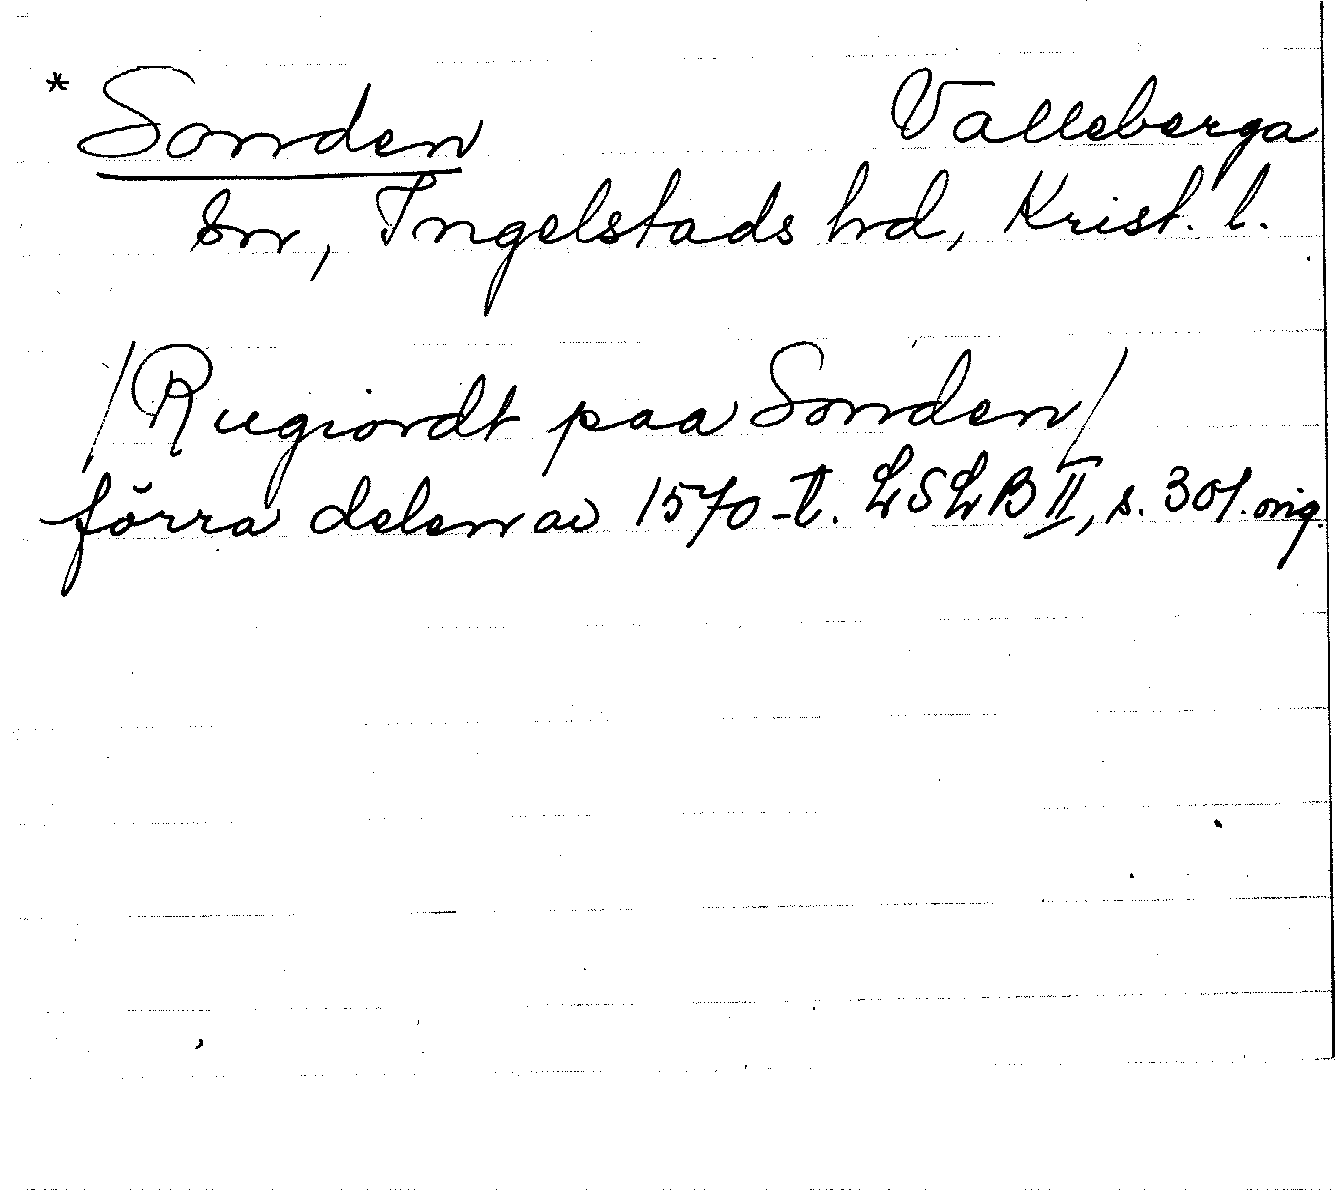 * Sonden Valleberga
sn, Ingelstads hd, Krist. l.
/Rugiordt paa Sonden/
förra delen av 1570-t. LSLB II, s. 301. orig.